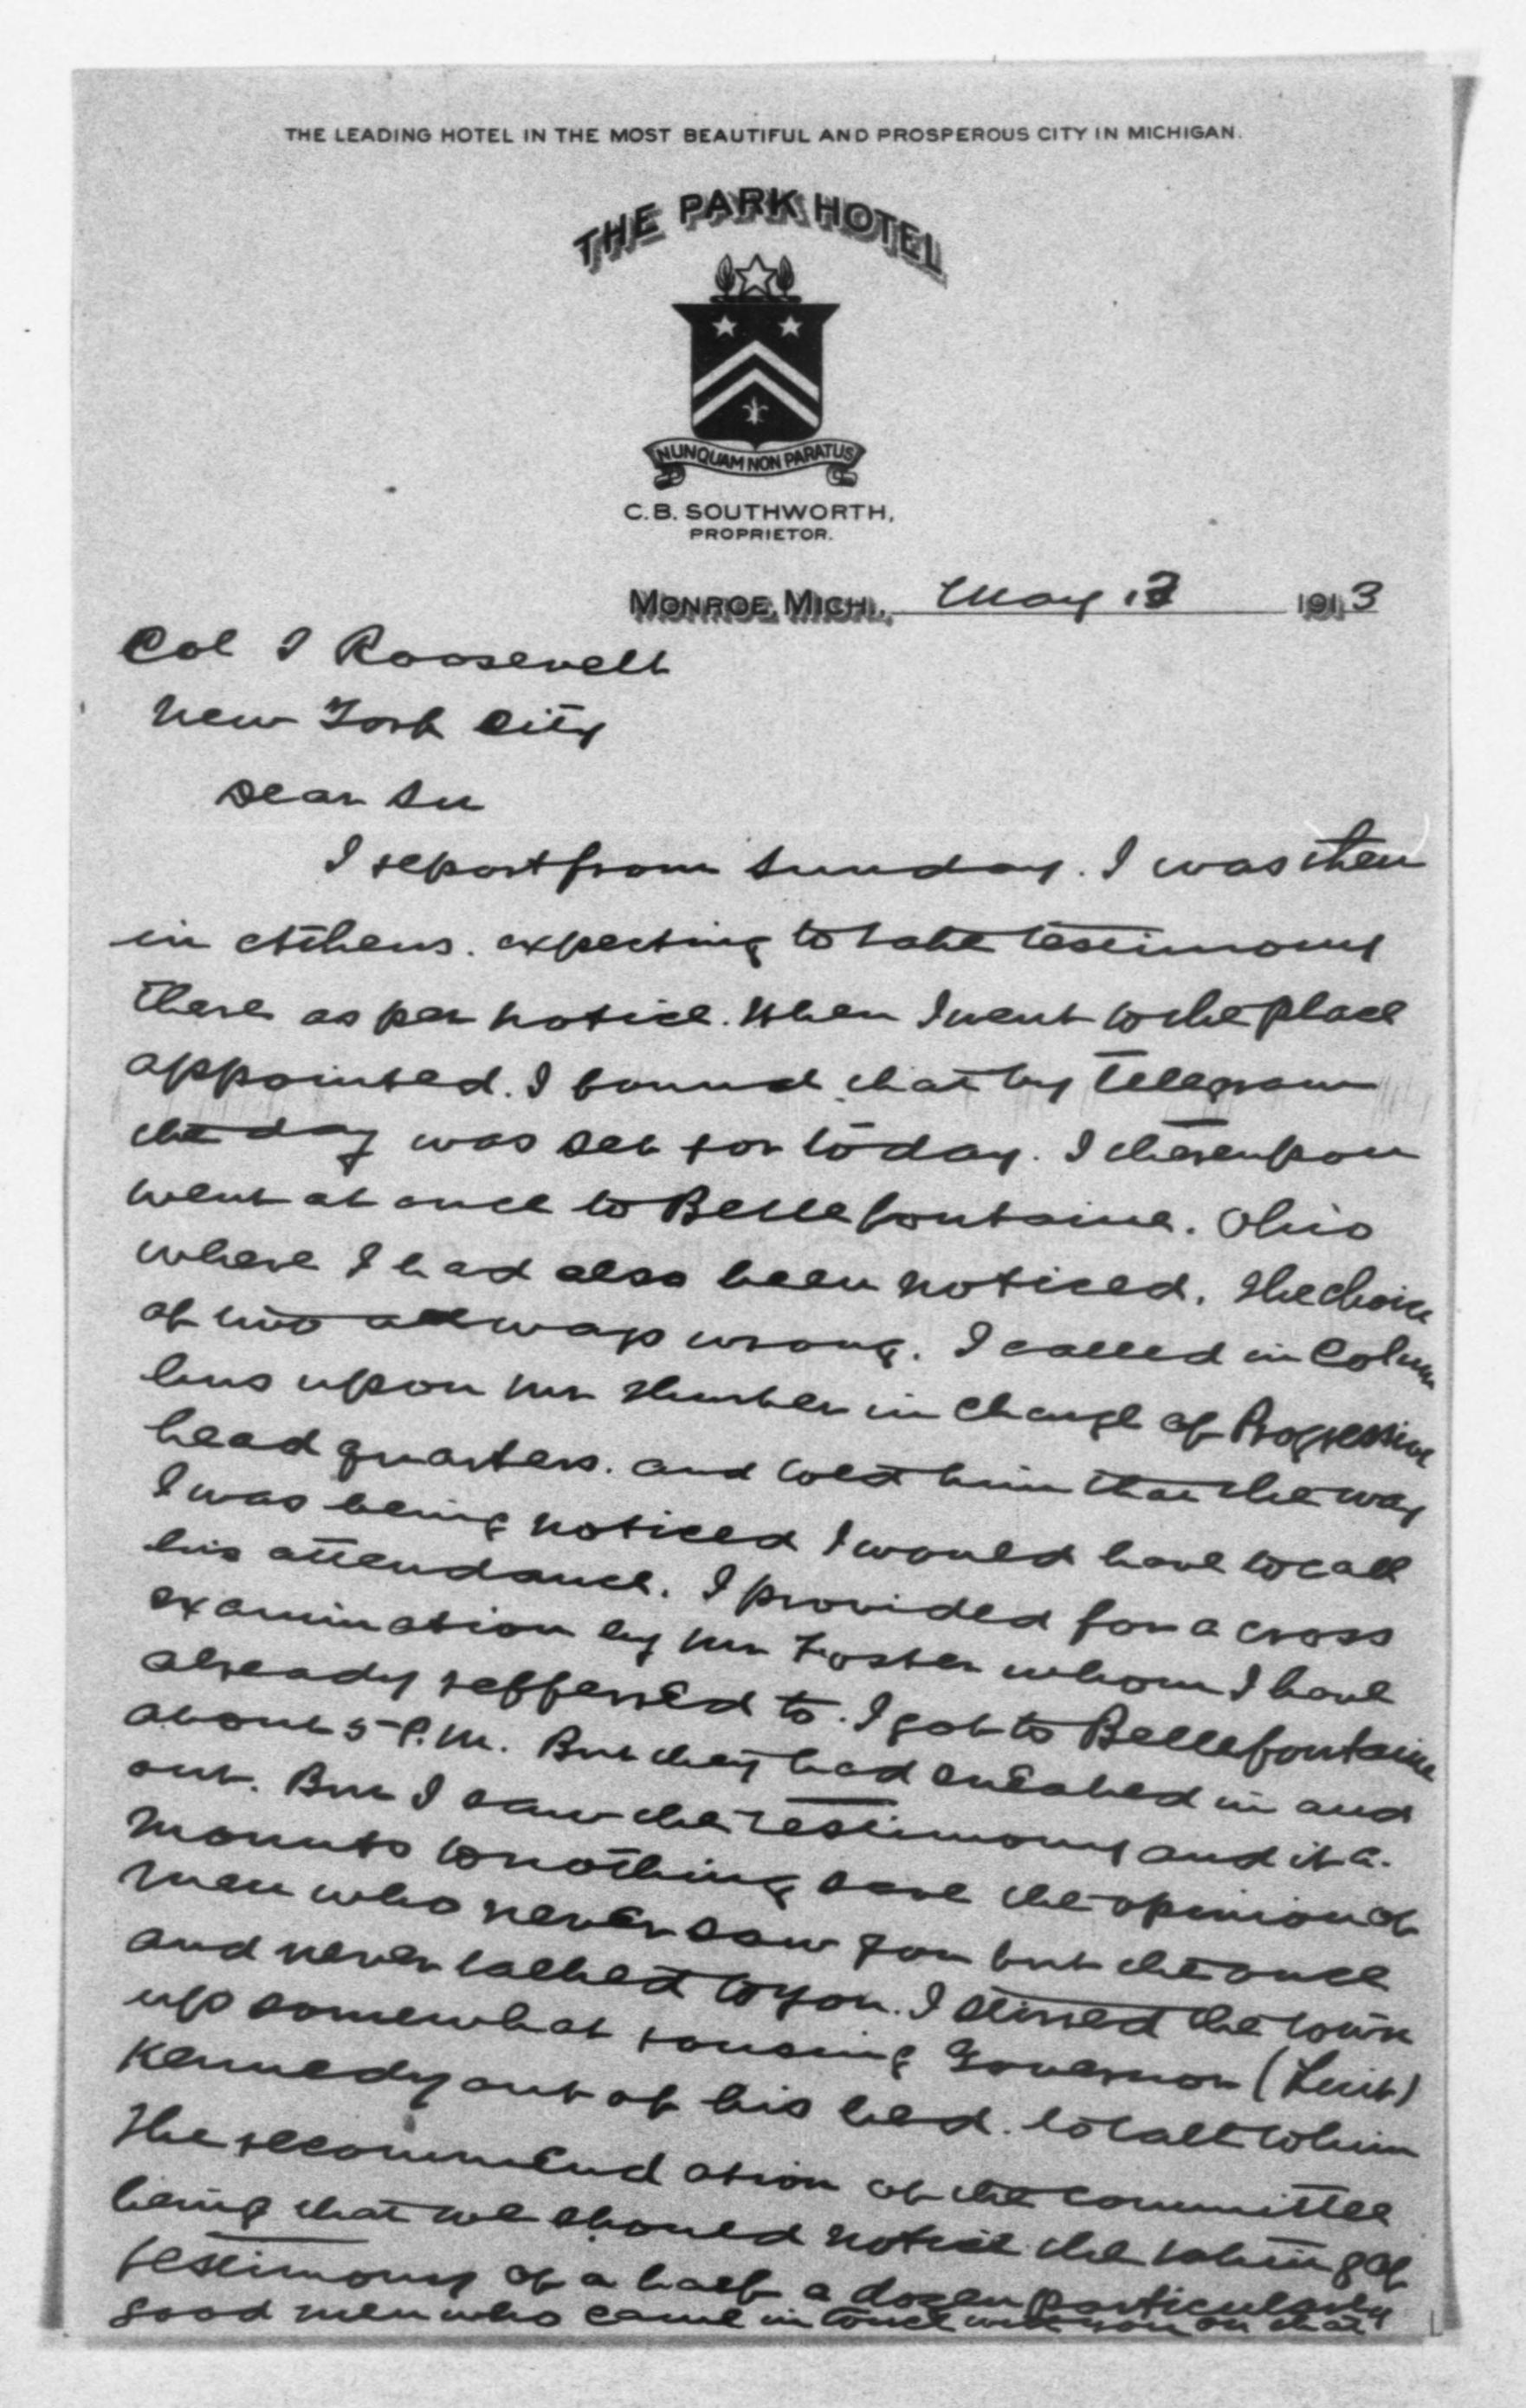 THE LEADING HOTEL IN THE MOST BEAUTIFUL AND PROSPEROUS CITY IN MICHIGAN.
THE PARK HOTEL
NUNQUAM NON PARATUS
C. B. SOUTHWORTH,
PROPRIETOR.
MONROE, MICH., May 13 1913
Col T Roosevelt
New York City
Dear Sir
I report from Sunday. I was then
in Athens. expecting to take testimony
there as per notice. When I went to the place
appointed. I found that by Telegram
the day was set for today. I thereupon
went at once to Bellefontaine. Ohio
where I had also been noticed. The choice
of two was wrong. I called in Colum
bus upon Mr in charge of Progressive
head quarters. and told him that the way
I was being noticed I would have to call
his attendance. I provided for a cross
examination by Mr Foster whom I have
already refferred to. I got to Bellefontaine
about 5 P.M. But they had sneaked in and
out. But I saw the testimony and it a-
mounts to nothing save the opinion of
men who never saw you but the once
and never talked to you. I stirred the town
up somewhat rousing Governor (Lieut)
Kennedy out of his bed. to talk to him
The recommendation of the committee
being that we should notice the taking of
testimony of a half a dozen particularly
good men who came in touch with you on that